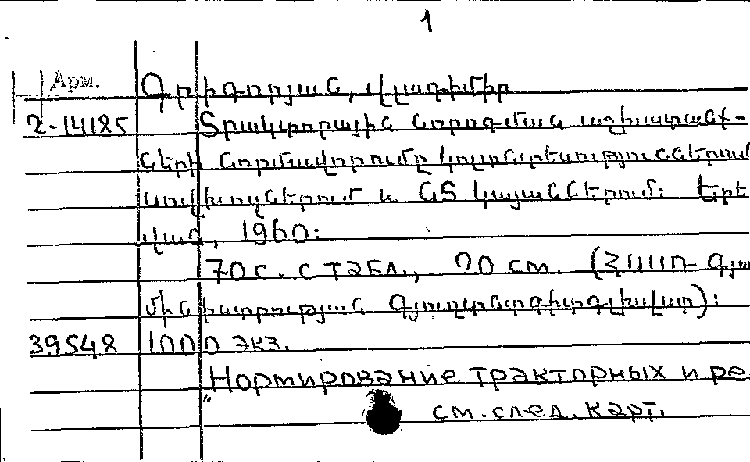 1
Арм. Գրիգորյան, Վլադիմիր
2-14185 Տրակտորային նորոգման աշխատանք-
ների նորմավորումը կոլտնտեսություններում
սովխոզներում և ՆՏ կայաններում: Երե
վան, 1960:
70 с. с табл., 20 см. (ՀՍՍՌ Գյու
մինիստրության Գյուղտնտգիտգլխվարչ):
39548 1000 экз.
"Нормирование тракторных и ре
см. след. карт.